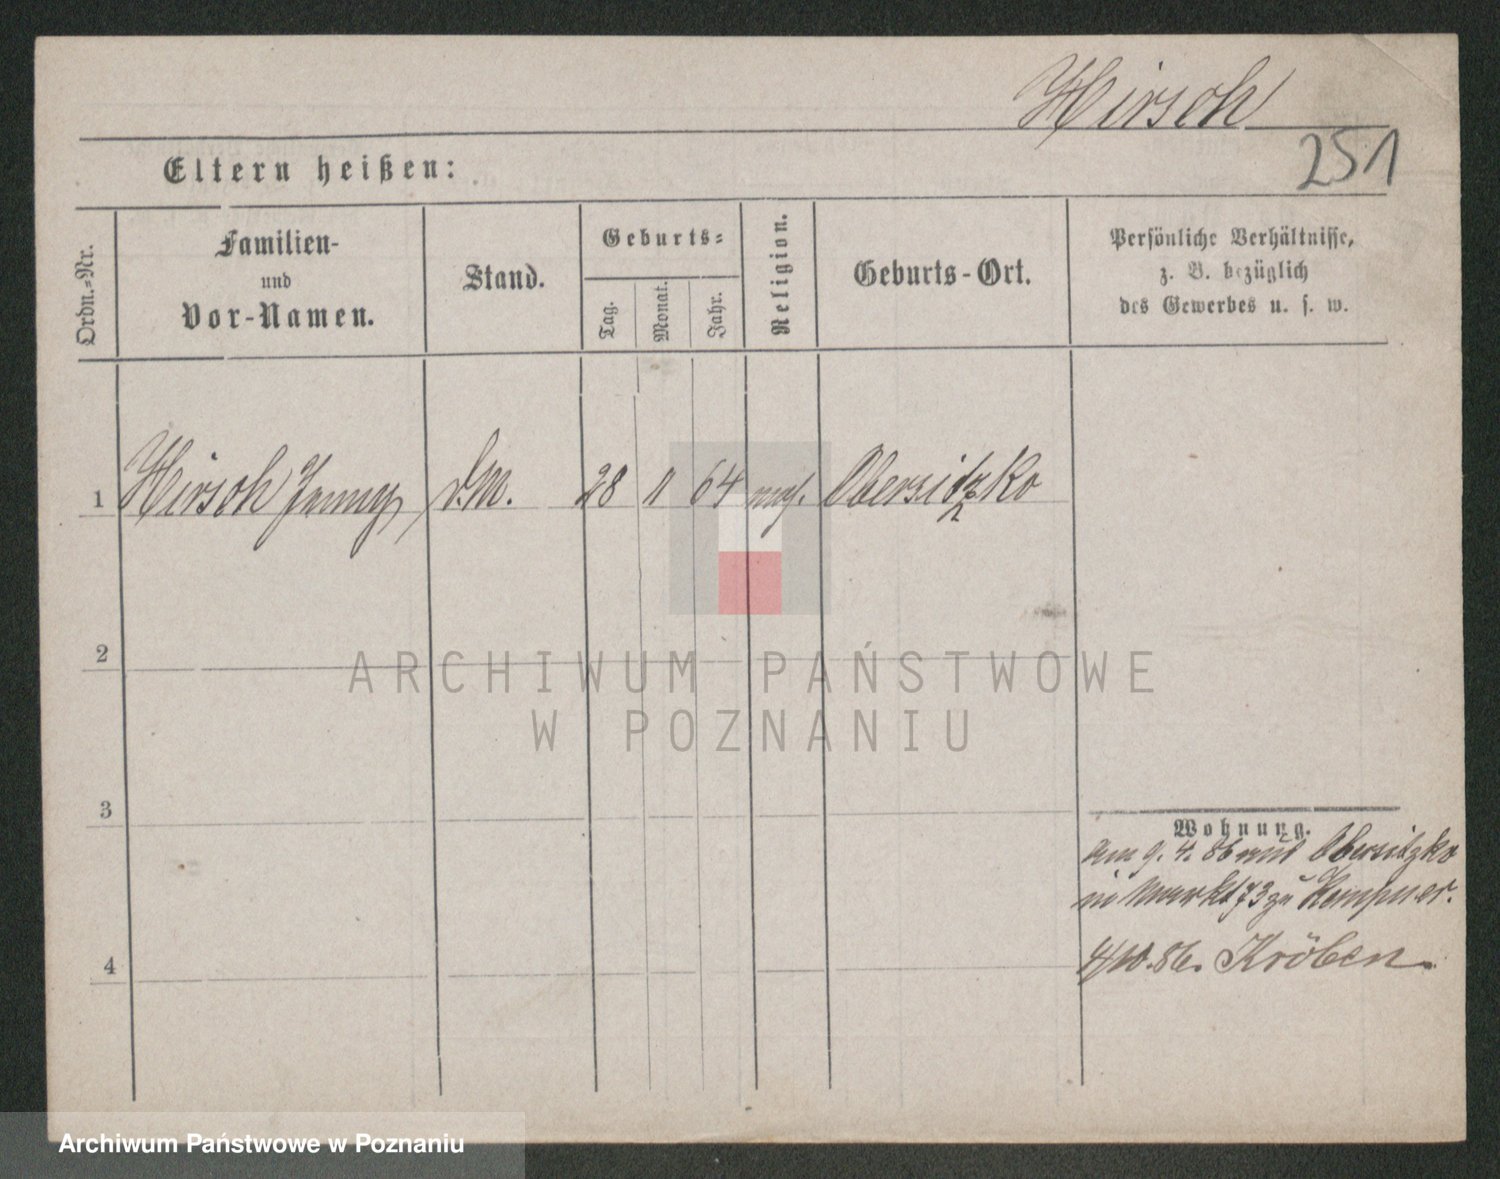 Hirsch
251
Eltern heißen:
Ordn.-Nr.
Familien-
und
Vor-Namen.
Stand.
Geburts-
Tag.
Monat.
Jahr.
Religion.
Geburts-Ort.
Persönliche Verhältnisse,
z. B. bezüglich
des Gewerbes u. s. w.
1 Hirsch Jenny d.M. 28 11 64 mos. Obersitzko
2
ARCHIWUM PAŃSTWOWE
W POZNANIU
3
Wohnung.
am 9. 4. 86 aus Obersitzko
in Markt 73 zu Kempner.
4
4/10.86. Kröben.
Archiwum Państwowe w Poznaniu